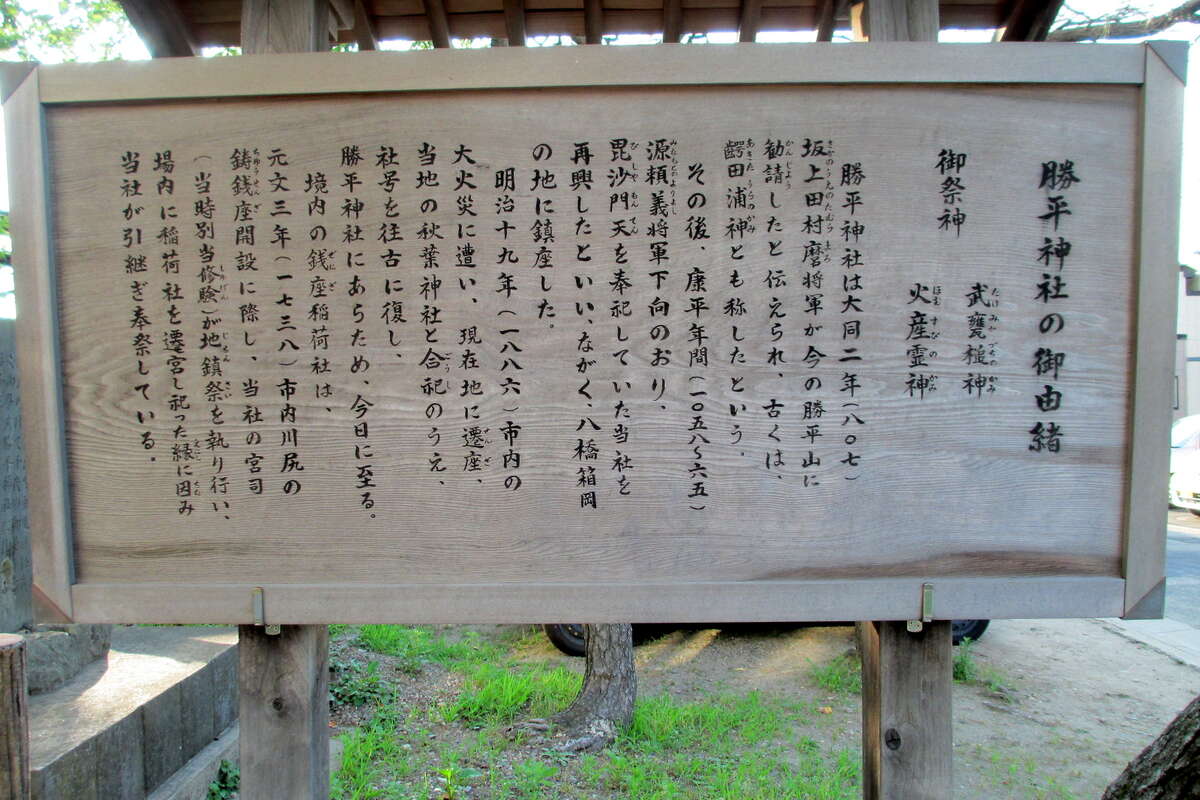 勝平神社の御由緒
御祭神
武甕槌神
火産霊神
勝平神社は大同二年(八〇七)
坂上田村麿将軍が今の勝平山に
勧請したと伝えられ、古くは、
齶田浦神とも称したという。
その後、康平年間(一〇五八〜六五)
源頼義将軍下向のおり、
毘沙門天を奉祀していた当社を
再興したといい、ながく、八橋箱岡
の地に鎮座した。
明治十九年(一八八六)市内の
大火災に遭い、現在地に遷座、
当地の秋葉神社と合祀のうえ、
社号を往古に復し、
勝平神社にあらため、今日に至る。
境内の銭座稲荷社は、
元文三年(一七三八)市内川尻の
鋳銭座開設に際し、当社の宮司
(当時別当修験)が地鎮祭を執り行い、
場内に稲荷社を遷宮し祀った縁に因み
当社が引継ぎ奉祭している。